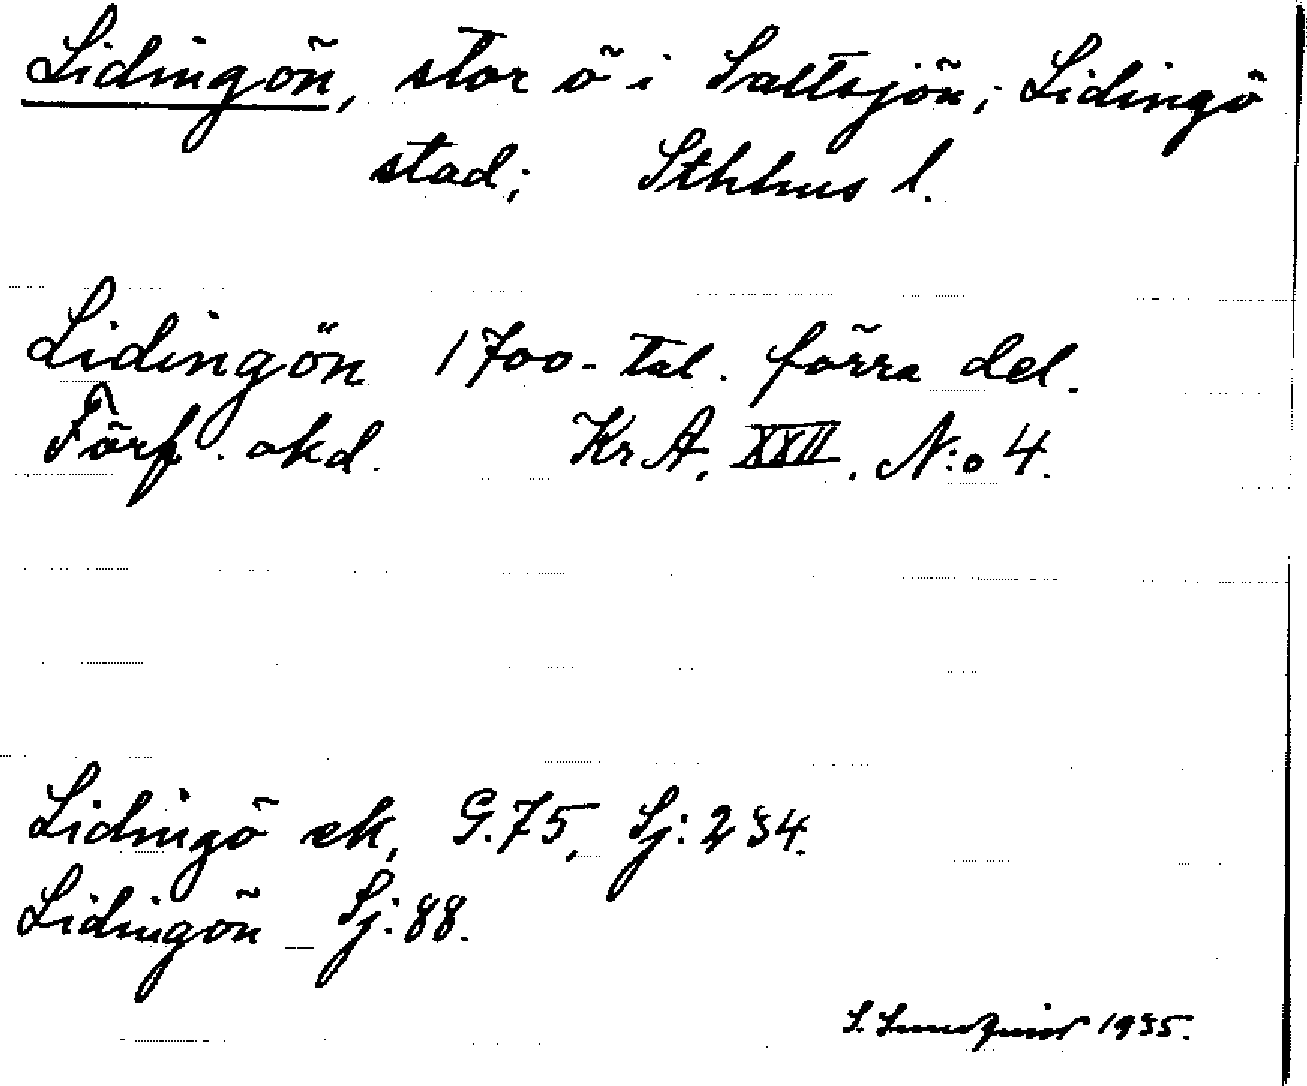 Lidingön, stor ö i Saltsjön; Lidingö
stad; Sthlms l.
Lidingön 1700-tal. förra del.
Förf. okd. Kr A. XXII. N:o 4.
Lidingö sk, G. 75, Sj: 234.
Lidingön — Sj: 88.
S. 1935.